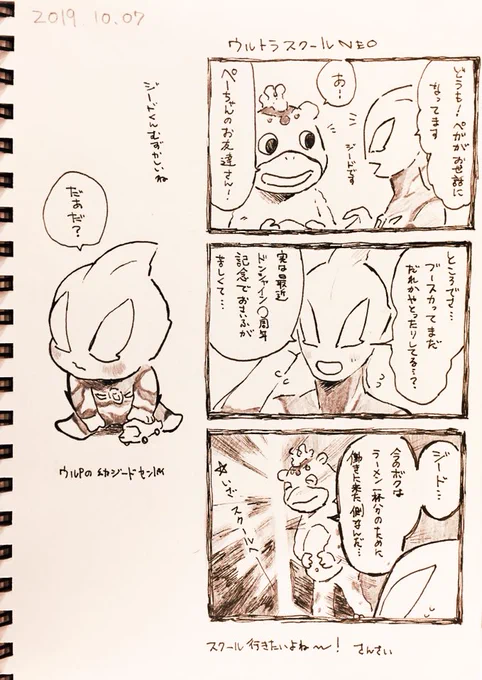 2019.10.07
ウルトラスクールNEO
どうも!ペガがお世話に
なってます
ジードです
あー!
ぺーちゃんのお友達さん!
ところでさ…
ブースカってまだ
だれかやとったりしてる…?
実は最近
ドンシャイン〇周年
記念でおさいふが
まずしくて…
ジード…
今のボクは
ラーメン一杯分のために
働きに来た側なんだ…
☆いざ
スクールへ
スクール行きたいよね〜!
さんさい
ジードくんむずかしいね
だあだ?
ウルPの幼ジードセンIM